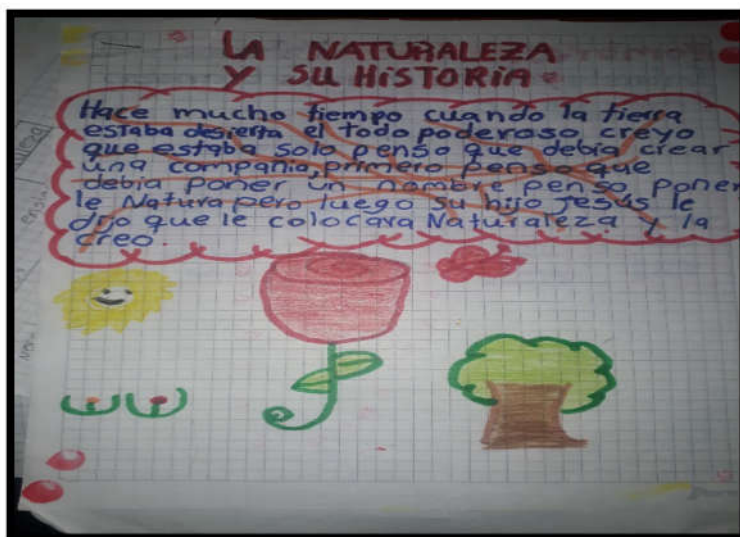 LA NATURALEZA
Y SU HISTORIA
Hace mucho tiempo cuando la tierra
estaba desierta el todo poderoso creyo
que estaba solo penso que debia crear
una compañia, primero penso que
debia poner un nombre penso poner
le Natura pero luego su hijo Jesús le
dijo que le colocara Naturaleza y la
creo.